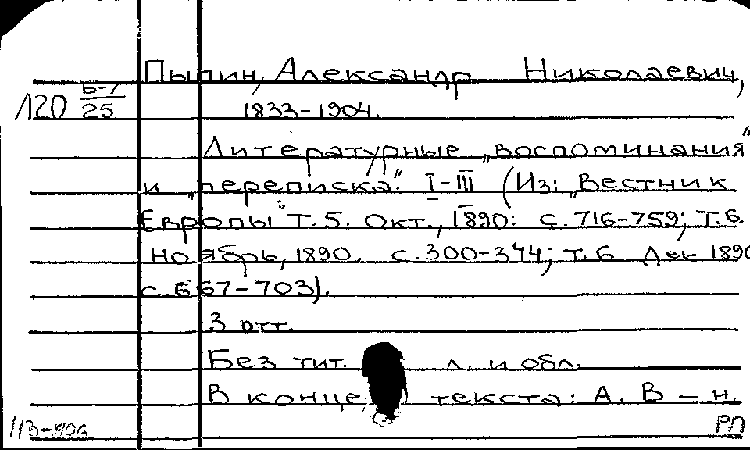 Пыпин, Александр Николаевич,
Л20 Б-7/25 1833-1904.
Литературные „воспоминания"
и „переписка". I-III (Из: „Вестник
Европы" Т.5. Окт., 1890: с.716-759; Т.6.
Ноябрь, 1890. с.300-344; т.6 Дек 1890
с.667-703).
3 отт.
Без тит. л. и обл.
В конце текста: А. В-н.
РП